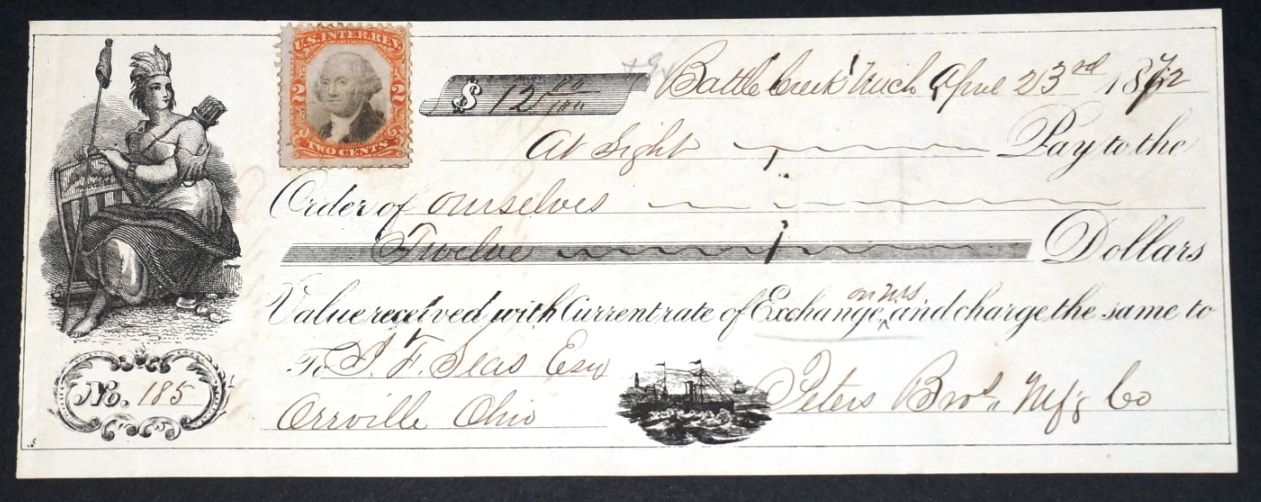 U.S. INTER. REV.
2 2
TWO CENTS
$ 12 00/100
Battle Creek Mich April 23rd 1872
At Sight Pay to the
Order of ourselves
Twelve Dollars
Value received with Current rate of Exchange on N.Y. and charge the same to
To S. F. Seas Esq
Orrville Ohio
Peters Bros. Mf'g Co
No. 185